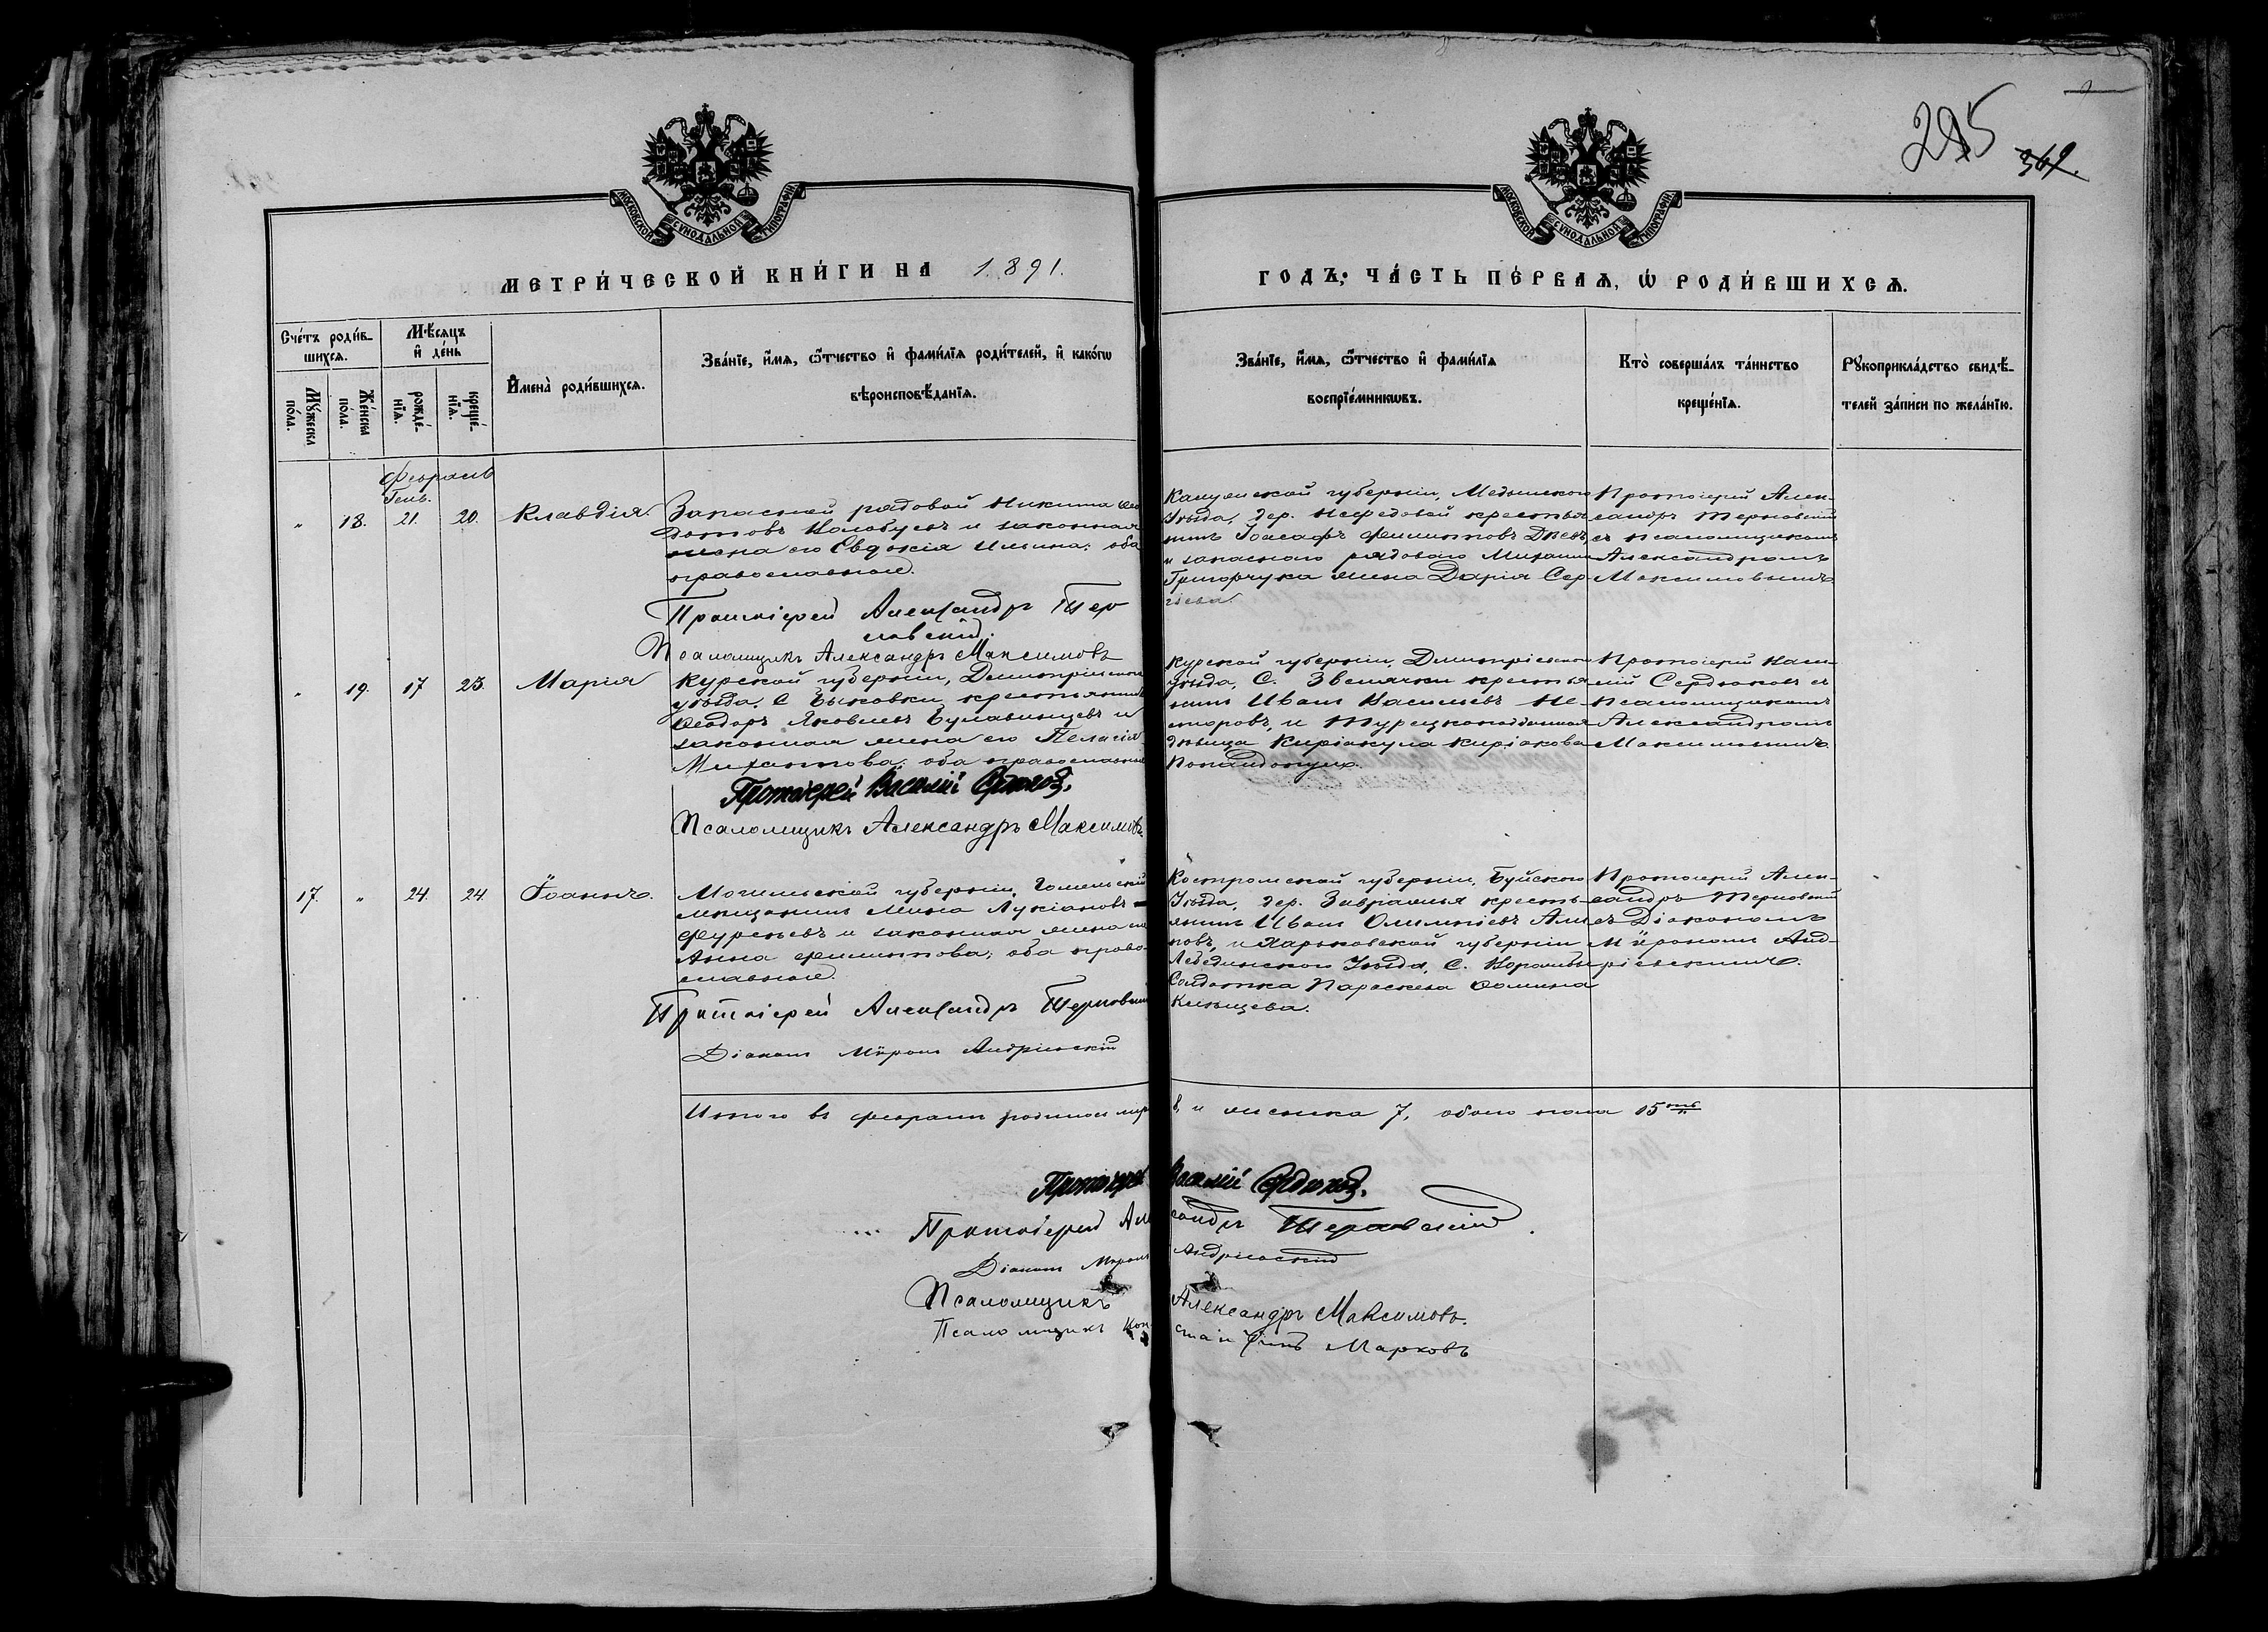 295
369.
МОСКОВСКОЙ СѴНОДАЛЬНОЙ ТИПОГРАФІИ
МОСКОВСКОЙ СѴНОДАЛЬНОЙ ТИПОГРАФІИ
МЕТРИ́ЧЕСКОЙ КНИ́ГИ НА 1891.
ГОДЪ, ЧА́СТЬ ПЕ́РВАѦ, Ѡ РОДИ́ВШИХСѦ.
Сче́тъ роди́в-
шихсѧ.
Мѣ́сѧцъ
и҆ де́нь
Мꙋ́жеска
по́ла.
Же́нска
по́ла.
рожде́-
нїѧ.
креще́-
нїѧ.
И҆мена̀ роди́вшихсѧ.
Зва́нїе, и҆́мѧ, ѻ҆́тчество и҆ фами́лїѧ роди́телей, и҆ како́гѡ
вѣроисповѣ́данїѧ.
Зва́нїе, и҆́мѧ, ѻ҆́тчество и҆ фами́лїѧ
воспрїе́мникѡвъ.
Кто̀ соверша́лъ та́инство
креще́нїѧ.
Рꙋкоприкла́дство свидѣ́-
телей за́писи по жела́нїю.
Февраль
Генв.
" 18. 21. 20. Клавдія
Запасной рядовой Никита Ѳео
дотовъ Колобуевъ и законная
жена его Евдокія Ильина; оба
православные.
Протоіерей Александръ Тер
новскій.
Псаломщикъ Александръ Максимовъ
Калужской губерніи, Медынскаго
Уѣзда, дер. Нефедовой крестья
нинъ Іоасафъ Филипповъ
и запаснаго рядоваго Михаила
Григорчука жена Дарія Сер
гіева.
Протоіерей Алек-
сандръ Терновскій
съ псаломщикомъ
Александромъ
Максимовымъ
" 19. 17 23. Марія
Курской губерніи, Дмитріевскаго
уѣзда, С. Быковки крестьянинъ
Ѳеодоръ Яковлевъ Булавинцевъ и
законная жена его Пелагія
Михаилова; оба православные
Протоіерей Василій Сердюковъ.
Псаломщикъ Александръ Максимовъ
Курской губерніи, Дмитріевскаго
уѣзда, С. Звенячки крестья
нинъ Иванъ Васильевъ Не-
сторовъ, и Турецкоподданная
дѣвица Киріакула Киріакова
Попандопуло.
Протоіерей Васи-
лій Сердюковъ съ
Псаломщикомъ
Александромъ
Максимовымъ
17. " 24. 24. Іоаннъ.
Могилевской губерніи, Гомельскій
мѣщанинъ Мина Лукіановъ
Фурсѣевъ и законная жена его
Анна Филиппова; оба право-
славные.
Протоіерей Александръ Терновскій
Діаконъ Мѵронъ Андріевскій
Костромской губерніи, Буйскаго
Уѣзда, дер. Завражья кресть-
янинъ Иванъ Олимпіевъ
повъ, и Харьковской губерніи
Лебединскаго Уѣзда, С.
Солдатка Параскева Ѳомина
Протоіерей Алек-
сандръ Терновскій
съ Діакономъ
Мѵрономъ Анд-
ріевскимъ.
Итого въ февралѣ родилось муж 8, и женска 7, обоего пола 15ть
Протоіерей Василій Сердюковъ.
Протоіерей Александръ Терновскій.
Діаконъ Мѵронъ Андріевскій
Псаломщикъ Александръ Максимовъ.
Псаломщикъ Константинъ Марковъ